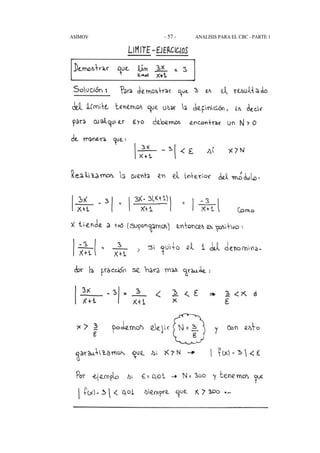 ASIMOV - 57 - ANALISIS PARA EL CBC - PARTE 1
LIMITE - EJERCICIOS
Demostrar que Lím 3X/X+1 = 3
Solución: Para demostrar que 3 es el resultado
del límite tenemos que usar la definición, es decir
para cualquier ε>0 debemos encontrar un N>0
de manera que:
|3X/X+1 - 3| < ε si X>N
Realizamos la cuenta en el interior del módulo.
|3X/X+1 - 3| = |3X-3(X+1)/X+1| = |-3/X+1| Como
X tiende a +∞ (supongamos) entonces es positivo:
|-3/X+1| = 3/X+1, si quito el 1 del denomina-
dor la fracción se hara mas grande:
|3X/X+1 - 3| = 3/X+1 < 3/X < ε ⇒ 3/ε < X ó
X > 3/ε podemos elejir N = 3/ε y con esto
garantizamos que si X>N → |f(x) - 3| < ε
Por ejemplo si ε=0,01 → N=300 y tenemos que
|f(x) - 3| < 0,01 siempre que X > 300